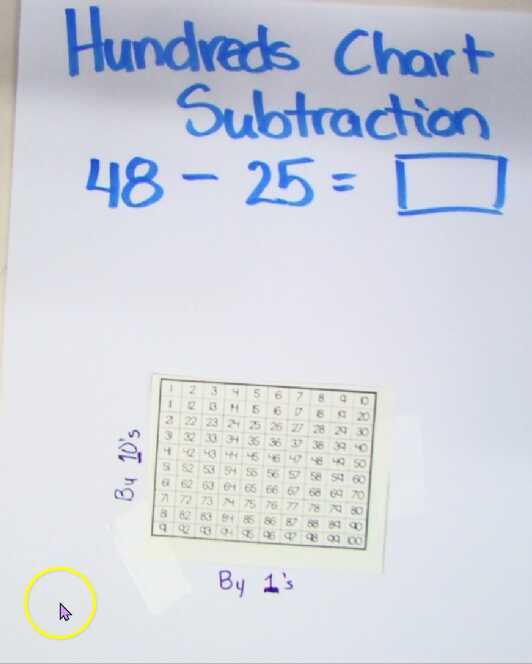 Hundreds Chart
Subtraction
48 - 25 =
1 2 3 4 5 6 7 8 9 10
11 12 13 14 15 16 17 18 19 20
21 22 23 24 25 26 27 28 29 30
31 32 33 34 35 36 37 38 39 40
41 42 43 44 45 46 47 48 49 50
51 52 53 54 55 56 57 58 59 60
61 62 63 64 65 66 67 68 69 70
71 72 73 74 75 76 77 78 79 80
81 82 83 84 85 86 87 88 89 90
91 92 93 94 95 96 97 98 99 100
By 10's
By 1's